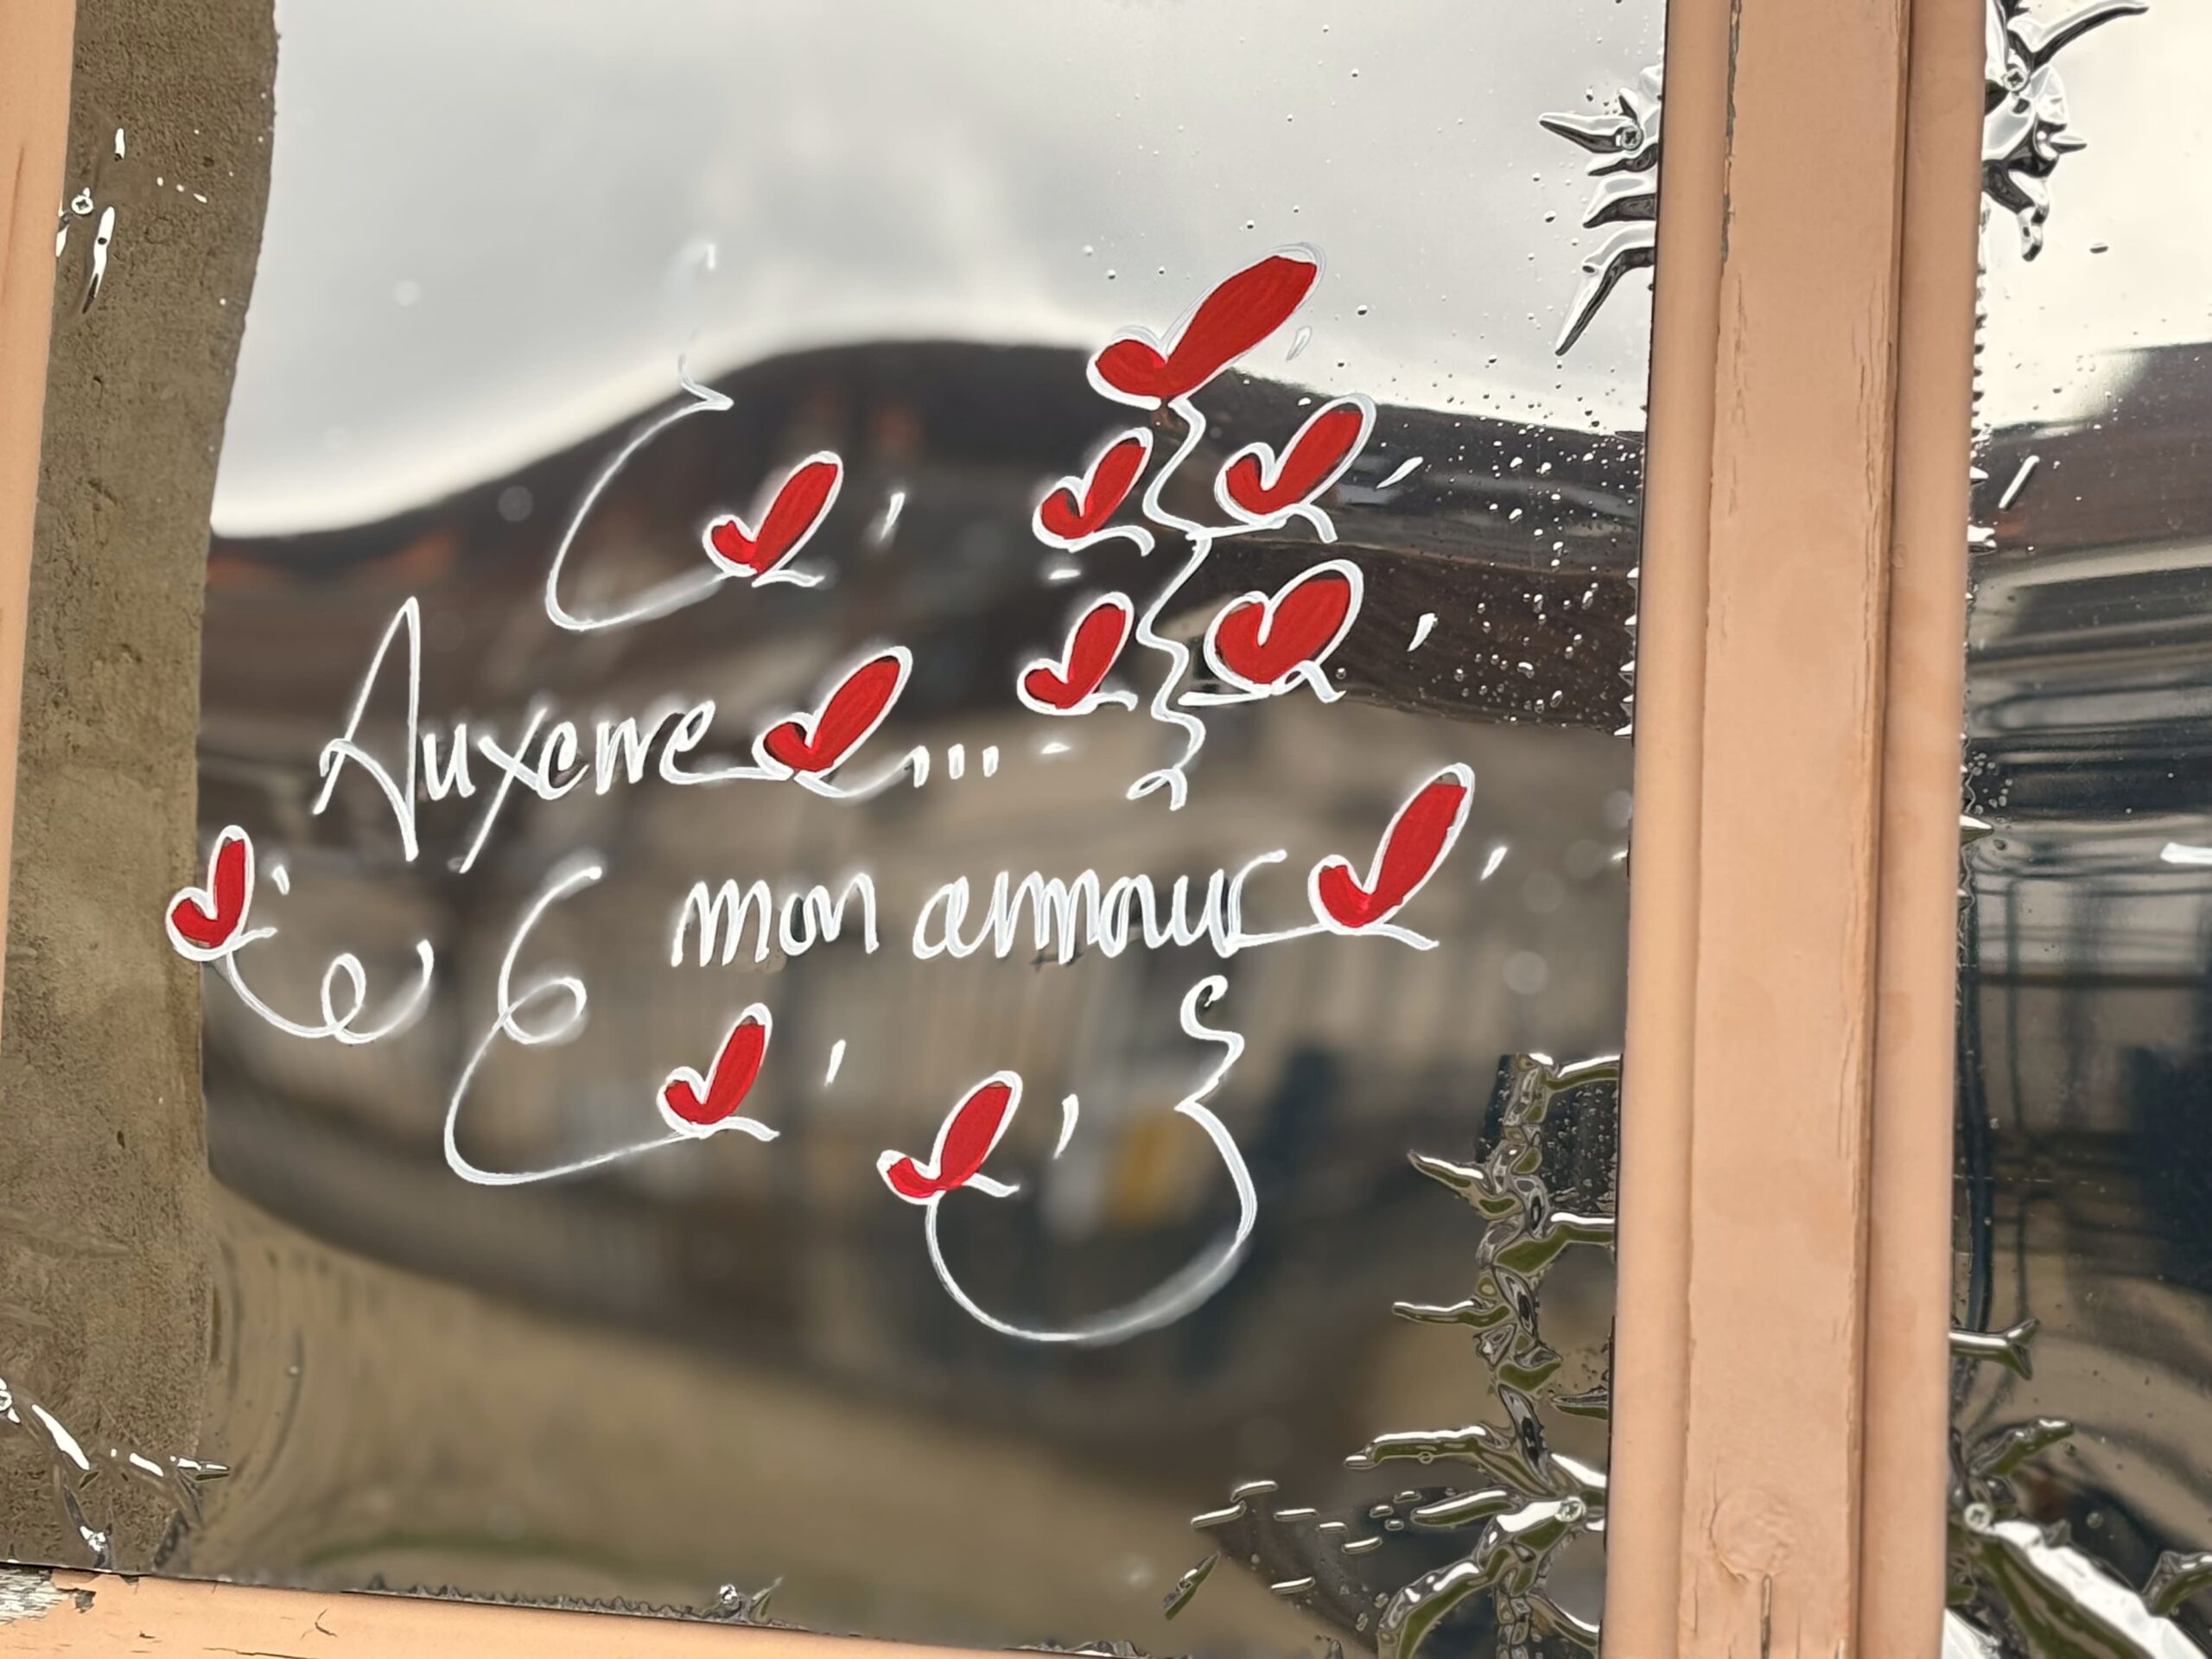 Auxerre...
mon amour